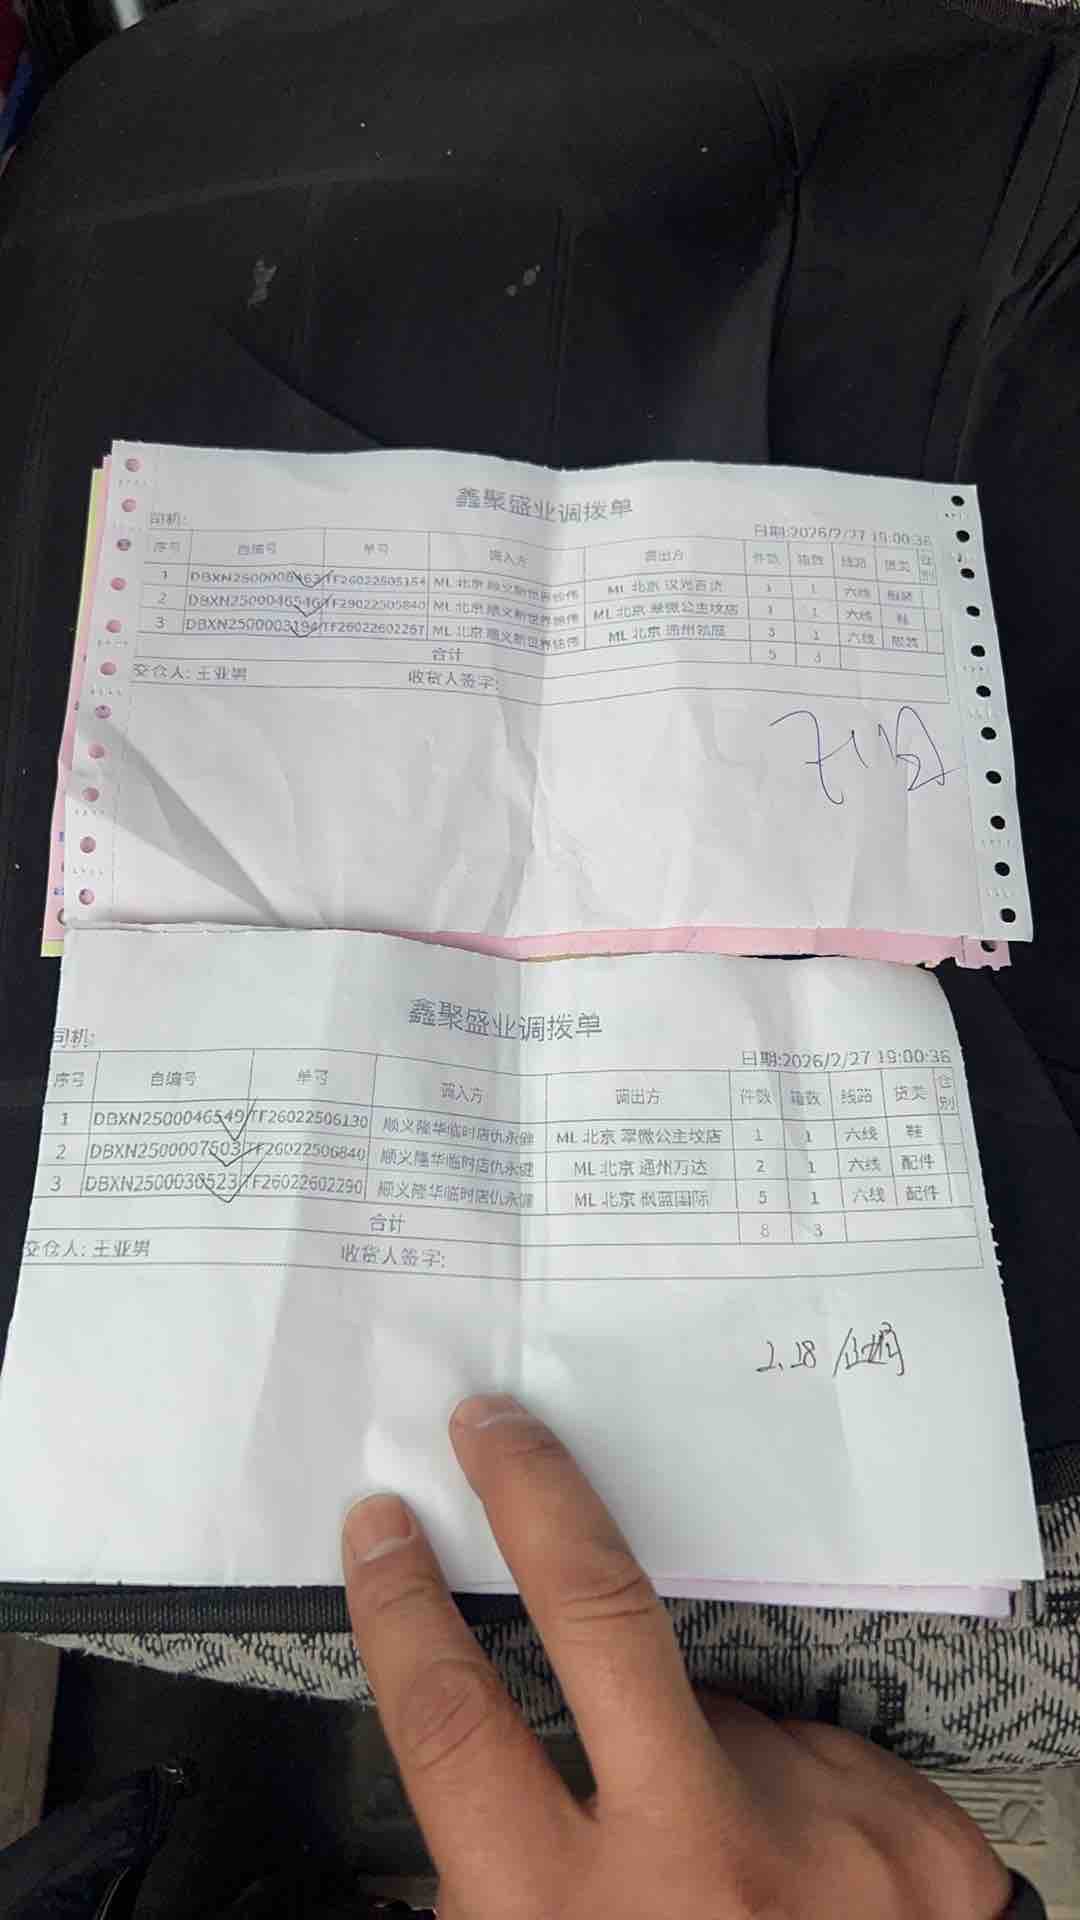 鑫聚盛业调拨单
司机: 日期:2026/2/27 19:00:36
序号 自编号 单号 调入方 调出方 件数 箱数 线路 货类 住别
1 TF26022505154 ML 北京 顺义新世界 ML 北京 汉光百货 1 1 六线 服装
2 DBXN2500046546 ML 北京 顺义新世界 ML 北京 翠微公主坟店 1 1 六线 鞋
3 DBXN2500003194 TF26022602267 ML 北京 顺义新世界 ML 北京 通州领展 3 1 六线 服装
合计 5 3
交仓人: 王亚男 收货人签字:
鑫聚盛业调拨单
司机: 日期:2026/2/27 19:00:36
序号 自编号 单号 调入方 调出方 件数 箱数 线路 货类 住别
1 DBXN2500046549 TF26022506130 顺义隆华临时店仇永健 ML 北京 翠微公主坟店 1 1 六线 鞋
2 DBXN2500007503 TF26022506840 顺义隆华临时店仇永健 ML 北京 通州万达 2 1 六线 配件
3 DBXN2500036523 TF26022602290 顺义隆华临时店仇永健 ML 北京 枫蓝国际 5 1 六线 配件
合计 8 3
交仓人: 王亚男 收货人签字:
2.28